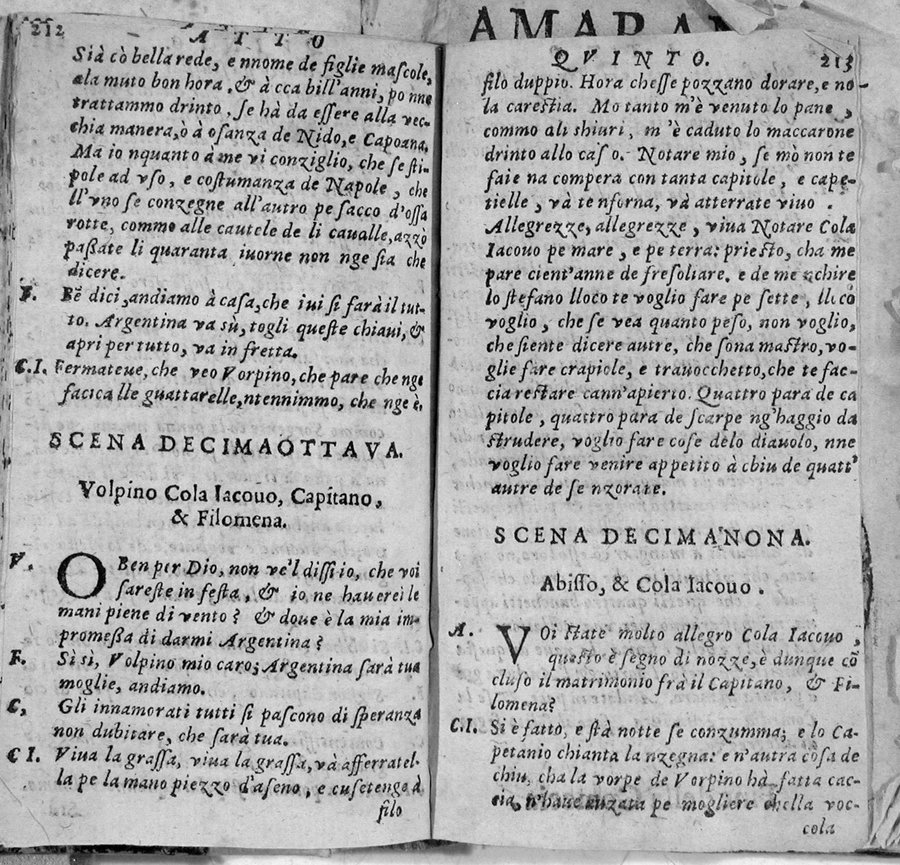 AMARAN
212
ATTO
Sià cò bella rede, e nnome de figlie mascole,
ala muto bon hora. & à cca bill'anni, po nne
trattammo drinto, se hà da essere alla vec-
chia manera, o à osanza de Nido, e Capoana.
Ma io nquanto a me vi conziglio, che se sti-
pole ad vso, e costumanza de Napole, che
ll'vno se conzegne all'autro pe sacco d'ossa
rotte, commo alle cautele de li caualle, azzò
passate li quaranta iuorne non nge sia che
dicere.
F. Bẽ dici, andiamo à casa, che iui si farà il tut-
to. Argentina va sù, togli queste chiaui, &
apri per tutto, va in fretta.
C.I. Fermateue, che veo Vorpino, che pare che nge
facica lle guattarelle, ntennimmo, che nge è.
SCENA DECIMAOTTAVA.
Volpino Cola Iacouo, Capitano,
& Filomena.
V. O Ben per Dio, non ve'l dissi io, che voi
sareste in festa, & io ne hauerei le
mani piene di vento? & doue è la mia im-
promessa di darmi Argentina?
F. Sì sì, Volpino mio caro; Argentina sarà tua
moglie, andiamo.
C. Gli innamorati tutti si pascono di speranza
non dubitare, che sarà tua.
C I. Viua la grassa, viua la grassa, và afferratel-
la pe la mano piezzo d'aseno, e cusetengo à
filo
QVINTO.
213
filo duppio. Hora chesse pozzano dorare, e no-
la carestia. Mo tanto m'è venuto lo pane,
commo ali shiuri, m'è caduto lo maccarone
drinto allo caso. Notare mio, se mò non te
faie na compera con tanta capitole, e cape-
tielle, và te nforna, và atterrate viuo.
Allegrezze, allegrezze, viua Notare Cola
Iacouo pe mare, e pe terra: priesto, cha me
pare cient'anne de fresoliare. e de me nchire
lo stefano lloco te voglio fare pe sette, llicò
voglio, che se vea quanto peso, non voglio,
che siente dicere autre, che sona mastro, vo-
glie fare crapiole, e trauocchetto, che te fac-
cia restare cann'apierto. Quattro para de ca
pitole, quattro para de scarpe ng'haggio da
strudere, voglio fare cose delo diauolo, nne
voglio fare venire appetito à chiu de quatt'
autre de se nzorate.
SCENA DECIMANONA.
Abisso, & Cola Iacouo.
A. Voi state molto allegro Cola Iacouo,
questo è segno di nozze, è dunque cõ
cluso il matrimonio frà il Capitano, & Fi-
lomena?
C.I. Si è fatto, e stà notte se conzumma; e lo Ca-
petanio chianta la nzegna: e n'autra còsa de
chiu, cha la vorpe de Vorpino hà fatta cac-
cia, n'haue auzata pe mogliere chella voc-
cola